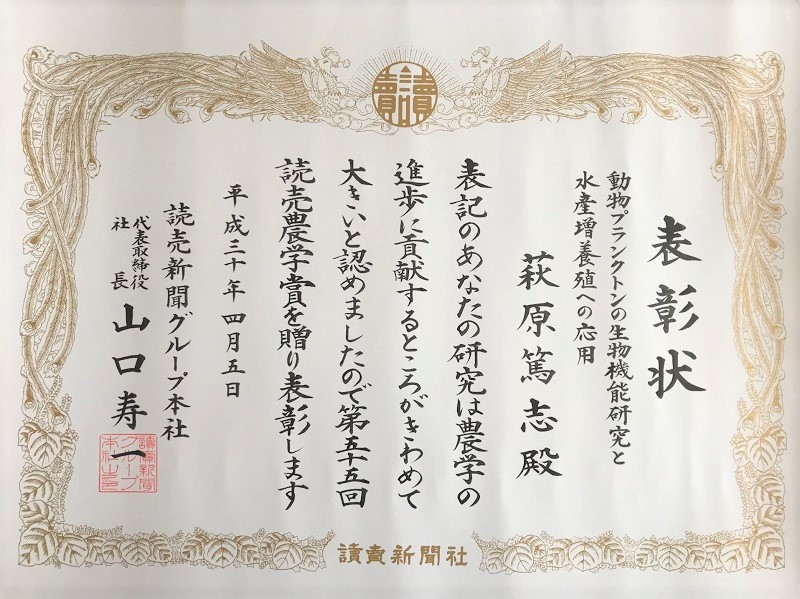 讀賣
表彰状
動物プランクトンの生物機能研究と
水産増養殖への応用
萩原篤志殿
表記のあなたの研究は農学の
進歩に貢献するところがきわめて
大きいと認めましたので第五十五回
読売農学賞を贈り表彰します
平成三十年四月五日
読売新聞グループ本社
代表取締役
社長
山口寿一
讀賣新聞
グループ
本社之印
讀賣新聞社